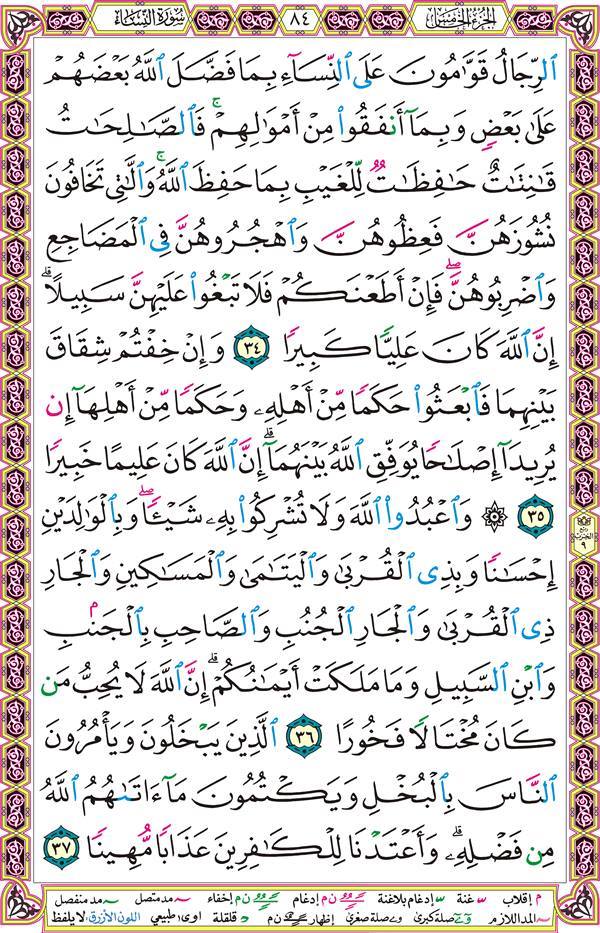 الجزء الخامس ٨٤ سورة النساء
ٱلرِّجَالُ قَوَّٰمُونَ عَلَى ٱلنِّسَآءِ بِمَا فَضَّلَ ٱللَّهُ بَعْضَهُمْ
عَلَىٰ بَعْضٍ وَبِمَآ أَنفَقُوا۟ مِنْ أَمْوَٰلِهِمْ ۚ فَٱلصَّـٰلِحَـٰتُ
قَـٰنِتَـٰتٌ حَـٰفِظَـٰتٌ لِّلْغَيْبِ بِمَا حَفِظَ ٱللَّهُ ۚ وَٱلَّـٰتِى تَخَافُونَ
نُشُوزَهُنَّ فَعِظُوهُنَّ وَٱهْجُرُوهُنَّ فِى ٱلْمَضَاجِعِ
وَٱضْرِبُوهُنَّ ۖ فَإِنْ أَطَعْنَكُمْ فَلَا تَبْغُوا۟ عَلَيْهِنَّ سَبِيلًا ۗ
إِنَّ ٱللَّهَ كَانَ عَلِيًّا كَبِيرًا ٣٤ وَإِنْ خِفْتُمْ شِقَاقَ
بَيْنِهِمَا فَٱبْعَثُوا۟ حَكَمًا مِّنْ أَهْلِهِۦ وَحَكَمًا مِّنْ أَهْلِهَآ إِن
يُرِيدَآ إِصْلَـٰحًا يُوَفِّقِ ٱللَّهُ بَيْنَهُمَآ ۗ إِنَّ ٱللَّهَ كَانَ عَلِيمًا خَبِيرًا
٣٥ ۞ وَٱعْبُدُوا۟ ٱللَّهَ وَلَا تُشْرِكُوا۟ بِهِۦ شَيْـًٔا ۖ وَبِٱلْوَٰلِدَيْنِ
إِحْسَـٰنًا وَبِذِى ٱلْقُرْبَىٰ وَٱلْيَتَـٰمَىٰ وَٱلْمَسَـٰكِينِ وَٱلْجَارِ
ذِى ٱلْقُرْبَىٰ وَٱلْجَارِ ٱلْجُنُبِ وَٱلصَّاحِبِ بِٱلْجَنۢبِ
وَٱبْنِ ٱلسَّبِيلِ وَمَا مَلَكَتْ أَيْمَـٰنُكُمْ ۗ إِنَّ ٱللَّهَ لَا يُحِبُّ مَن
كَانَ مُخْتَالًا فَخُورًا ٣٦ ٱلَّذِينَ يَبْخَلُونَ وَيَأْمُرُونَ
ٱلنَّاسَ بِٱلْبُخْلِ وَيَكْتُمُونَ مَآ ءَاتَىٰهُمُ ٱللَّهُ
مِن فَضْلِهِۦ ۗ وَأَعْتَدْنَا لِلْكَـٰفِرِينَ عَذَابًا مُّهِينًا ٣٧
ربع
الحزب
٩
م إقلاب غنة إدغام بلاغنة ن م إدغام ن م إخفاء مد متصل مد منفصل
المد اللازم صلة كبرى صلة صغرى إظهار ن م قلقلة اوى طبيعي اللون الأزرق: لا يلفظ